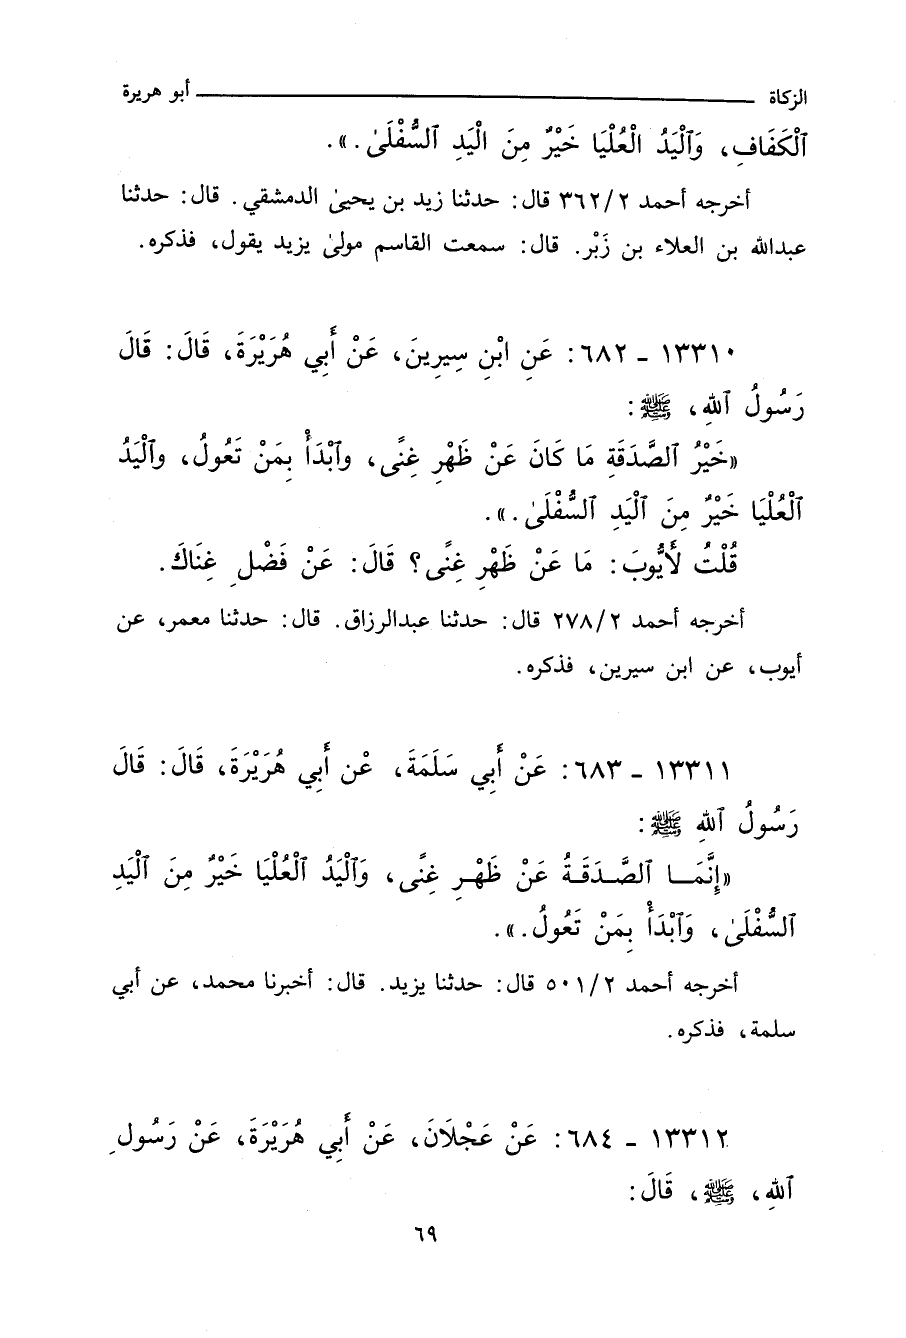 الزكاة ــــــــــــــــ أبو هريرة
ٱلْكَفَافِ، وَٱلْيَدُ الْعُلْيَا خَيْرٌ مِنَ الْيَدِ السُّفْلَىٰ.».
أخرجه أحمد ٣٦٢/٢ قال: حدثنا زيد بن يحيىٰ الدمشقي. قال: حدثنا
عبدالله بن العلاء بن زَبْر. قال: سمعت القاسم مولىٰ يزيد يقول، فذكره.
١٣٣١٠ - ٦٨٢: عَنِ ابْنِ سِيرِينَ، عَنْ أَبِي هُرَيْرَةَ، قَالَ: قَالَ
رَسُولُ ٱللهِ، ﷺ:
«خَيْرُ ٱلصَّدَقَةِ مَا كَانَ عَنْ ظَهْرِ غِنًى، وٱبْدَأْ بِمَنْ تَعُولُ، وٱلْيَدُ
ٱلْعُلْيَا خَيْرٌ مِنَ ٱلْيَدِ السُّفْلَىٰ.».
قُلْتُ لَأَيُّوبَ: مَا عَنْ ظَهْرِ غِنًى؟ قَالَ: عَنْ فَضْلِ غِنَاكَ.
أخرجه أحمد ٢٧٨/٢ قال: حدثنا عبدالرزاق. قال: حدثنا معمر، عن
أيوب، عن ابن سيرين، فذكره.
١٣٣١١ - ٦٨٣: عَنْ أَبِي سَلَمَةَ، عْن أَبِي هُرَيْرَةَ، قَالَ: قَالَ
رَسُولُ ٱللهِ ﷺ:
«إِنَّمَـا ٱلصَّـدَقَـةُ عَنْ ظَهْـرِ غِنًى، وَٱلْيَدُ ٱلْعُلْيَا خَيْرٌ مِنَ ٱلْيَدِ
ٱلسُّفْلَىٰ، وَٱبْدَأْ بِمَنْ تَعُولُ.».
أخرجه أحمد ٥٠١/٢ قال: حدثنا يزيد. قال: أخبرنا محمد، عن أبي
سلمة، فذكره.
١٣٣١٢ - ٦٨٤: عَنْ عَجْلَانَ، عَنْ أَبِي هُرَيْرَةَ، عَنْ رَسُولِ
ٱللهِ، ﷺ، قَالَ:
٦٩